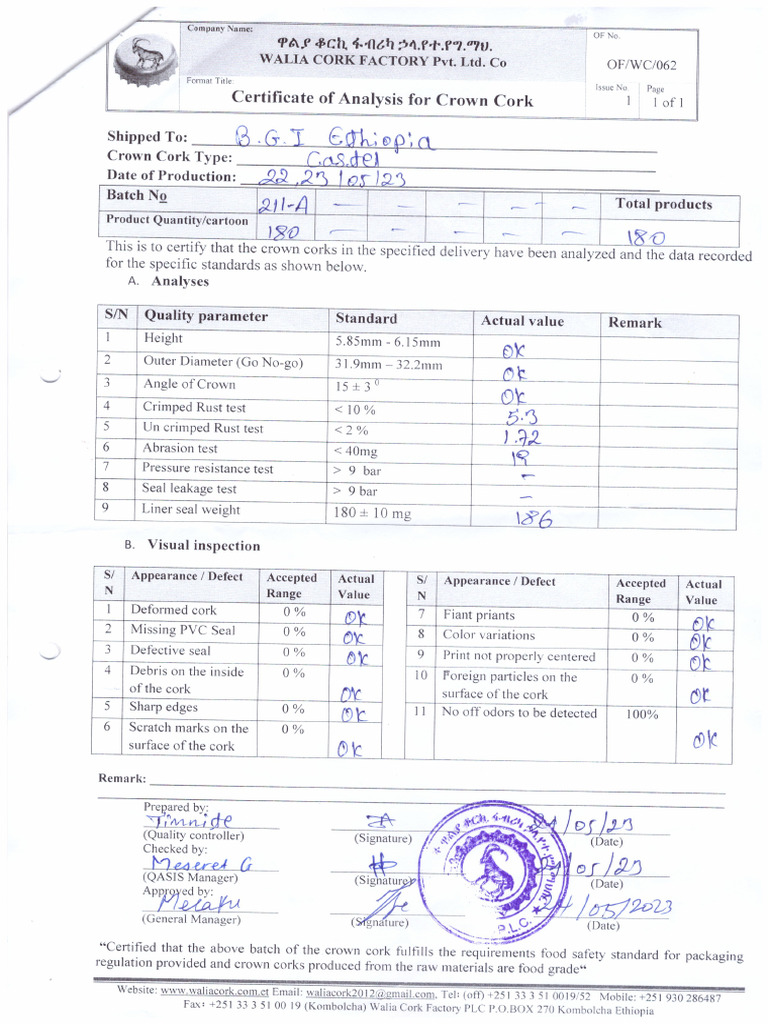 Company Name:
ዋልያ ቆርኪ ፋብሪካ ኃላ.የተ.የግ.ማህ.
WALIA CORK FACTORY Pvt. Ltd. Co
OF No.
OF/WC/062
Format Title:
Certificate of Analysis for Crown Cork
Issue No. Page
1 1 of 1
Shipped To: B.G.I Ethiopia
Crown Cork Type: Castel
Date of Production: 22,23/05/23
Batch No 211-A — — — — — Total products
Product Quantity/cartoon 180 — — — — — 180
This is to certify that the crown corks in the specified delivery have been analyzed and the data recorded
for the specific standards as shown below.
A. Analyses
S/N Quality parameter Standard Actual value Remark
1 Height 5.85mm - 6.15mm OK
2 Outer Diameter (Go No-go) 31.9mm – 32.2mm OK
3 Angle of Crown 15 ± 3 ⁰ OK
4 Crimped Rust test < 10 % 5.3
5 Un crimped Rust test < 2 % 1.72
6 Abrasion test < 40mg 19
7 Pressure resistance test > 9 bar –
8 Seal leakage test > 9 bar –
9 Liner seal weight 180 ± 10 mg 186
B. Visual inspection
S/N Appearance / Defect Accepted Range Actual Value
1 Deformed cork 0 % OK
2 Missing PVC Seal 0 % OK
3 Defective seal 0 % OK
4 Debris on the inside of the cork 0 % OK
5 Sharp edges 0 % OK
6 Scratch marks on the surface of the cork 0 % OK
S/N Appearance / Defect Accepted Range Actual Value
7 Fiant priants 0 % OK
8 Color variations 0 % OK
9 Print not properly centered 0 % OK
10 Foreign particles on the surface of the cork 0 % OK
11 No off odors to be detected 100% OK
Remark:
Prepared by:
Timnide /05/23
(Quality controller) (Signature) (Date)
Checked by:
Meseret G /05/23
(QASIS Manager) (Signature) (Date)
Approved by:
Melaku 24/05/2023
(General Manager) (Signature) (Date)
P.L.C.
“Certified that the above batch of the crown cork fulfills the requirements food safety standard for packaging
regulation provided and crown corks produced from the raw materials are food grade“
Website: www.waliacork.com.et Email: waliacork2012@gmail.com, Tel: (off) +251 33 3 51 0019/52 Mobile: +251 930 286487
Fax: +251 33 51 00 19 (Kombolcha) Walia Cork Factory PLC P.O.BOX 270 Kombolcha Ethiopia